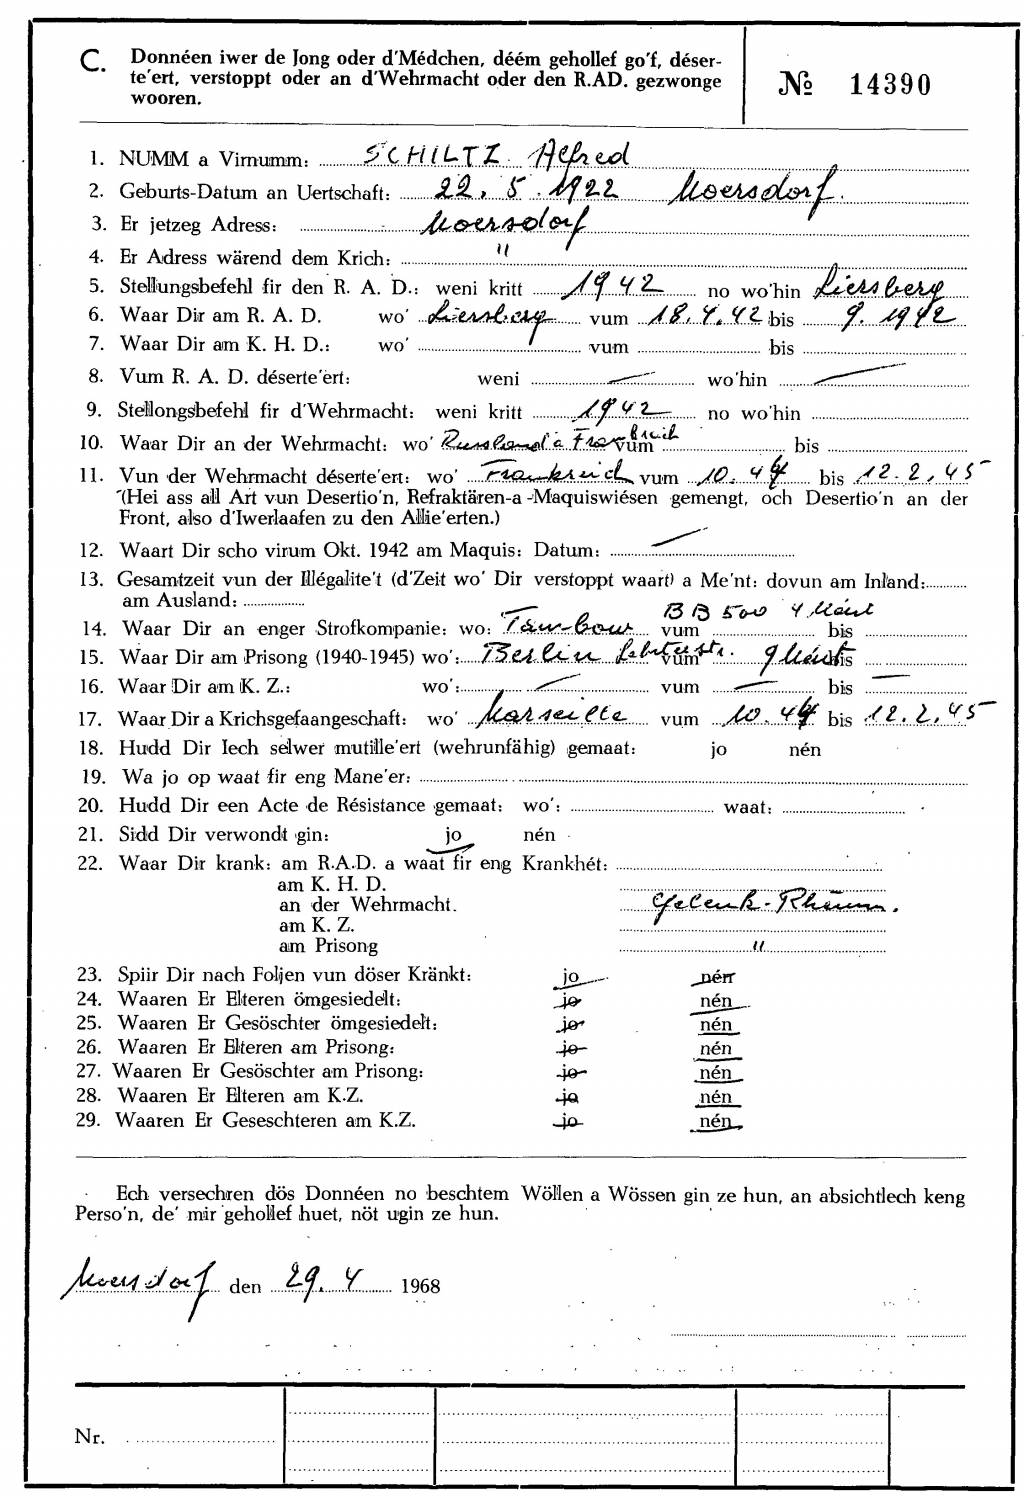 C. Donnéen iwer de Jong oder d'Médchen, déém gehollef go'f, déser-
te'ert, verstoppt oder an d'Wehrmacht oder den R.AD. gezwonge
wooren.
№ 14390
1. NUMM a Virnumm: SCHILTZ Alfred
2. Geburts-Datum an Uertschaft: 22. 5. 1922 Moersdorf.
3. Er jetzeg Adress: Moersdorf
4. Er Adress wärend dem Krich: "
5. Stellungsbefehl fir den R. A. D.: weni kritt 1942 no wo'hin Liersberg
6. Waar Dir am R. A. D. wo' Liersberg vum 18.4.42 bis 9. 1942
7. Waar Dir am K. H. D.: wo' vum bis
8. Vum R. A. D. déserte'ert: weni — wo'hin —
9. Stellongsbefehl fir d'Wehrmacht: weni kritt 1942 no wo'hin
10. Waar Dir an der Wehrmacht: wo' Russland a Frankreich vum bis
11. Vun der Wehrmacht déserte'ert: wo' Frankreich vum 10.44 bis 12.2.45
(Hei ass all Art vun Desertio'n, Refraktären-a -Maquiswiésen gemengt, och Desertio'n an der
Front, also d'Iwerlaafen zu den Allie'erten.)
12. Waart Dir scho virum Okt. 1942 am Maquis: Datum: —
13. Gesamtzeit vun der Illégalite't (d'Zeit wo' Dir verstoppt waart) a Me'nt: dovun am Inland:
am Ausland:
BB 500 4 Méint
14. Waar Dir an enger Strofkompanie: wo: Tambow vum bis
15. Waar Dir am Prisong (1940-1945) wo': Berlin Lehrterstr. vum 9 Méint bis
16. Waar Dir am K. Z.: wo': — vum — bis —
17. Waar Dir a Krichsgefaangeschaft: wo' Marseille vum 10.44 bis 12.2.45
18. Hudd Dir Iech selwer mutille'ert (wehrunfähig) gemaat: jo nén
19. Wa jo op waat fir eng Mane'er:
20. Hudd Dir een Acte de Résistance gemaat: wo': waat:
21. Sidd Dir verwondt gin: jo nén
22. Waar Dir krank: am R.A.D. a waat fir eng Krankhét:
am K. H. D.
an der Wehrmacht. Gelenk-Rheum.
am K. Z.
am Prisong "
23. Spiir Dir nach Foljen vun döser Kränkt: jo nén
24. Waaren Er Elteren ömgesiedelt: jo nén
25. Waaren Er Gesöschter ömgesiedelt: jo nén
26. Waaren Er Elteren am Prisong: jo nén
27. Waaren Er Gesöschter am Prisong: jo nén
28. Waaren Er Elteren am K.Z. jo nén
29. Waaren Er Geseschteren am K.Z. jo nén
Ech versechren dös Donnéen no beschtem Wöllen a Wössen gin ze hun, an absichtlech keng
Perso'n, de' mir gehollef huet, nöt ugin ze hun.
Moersdorf den 29. 4 1968
Nr.